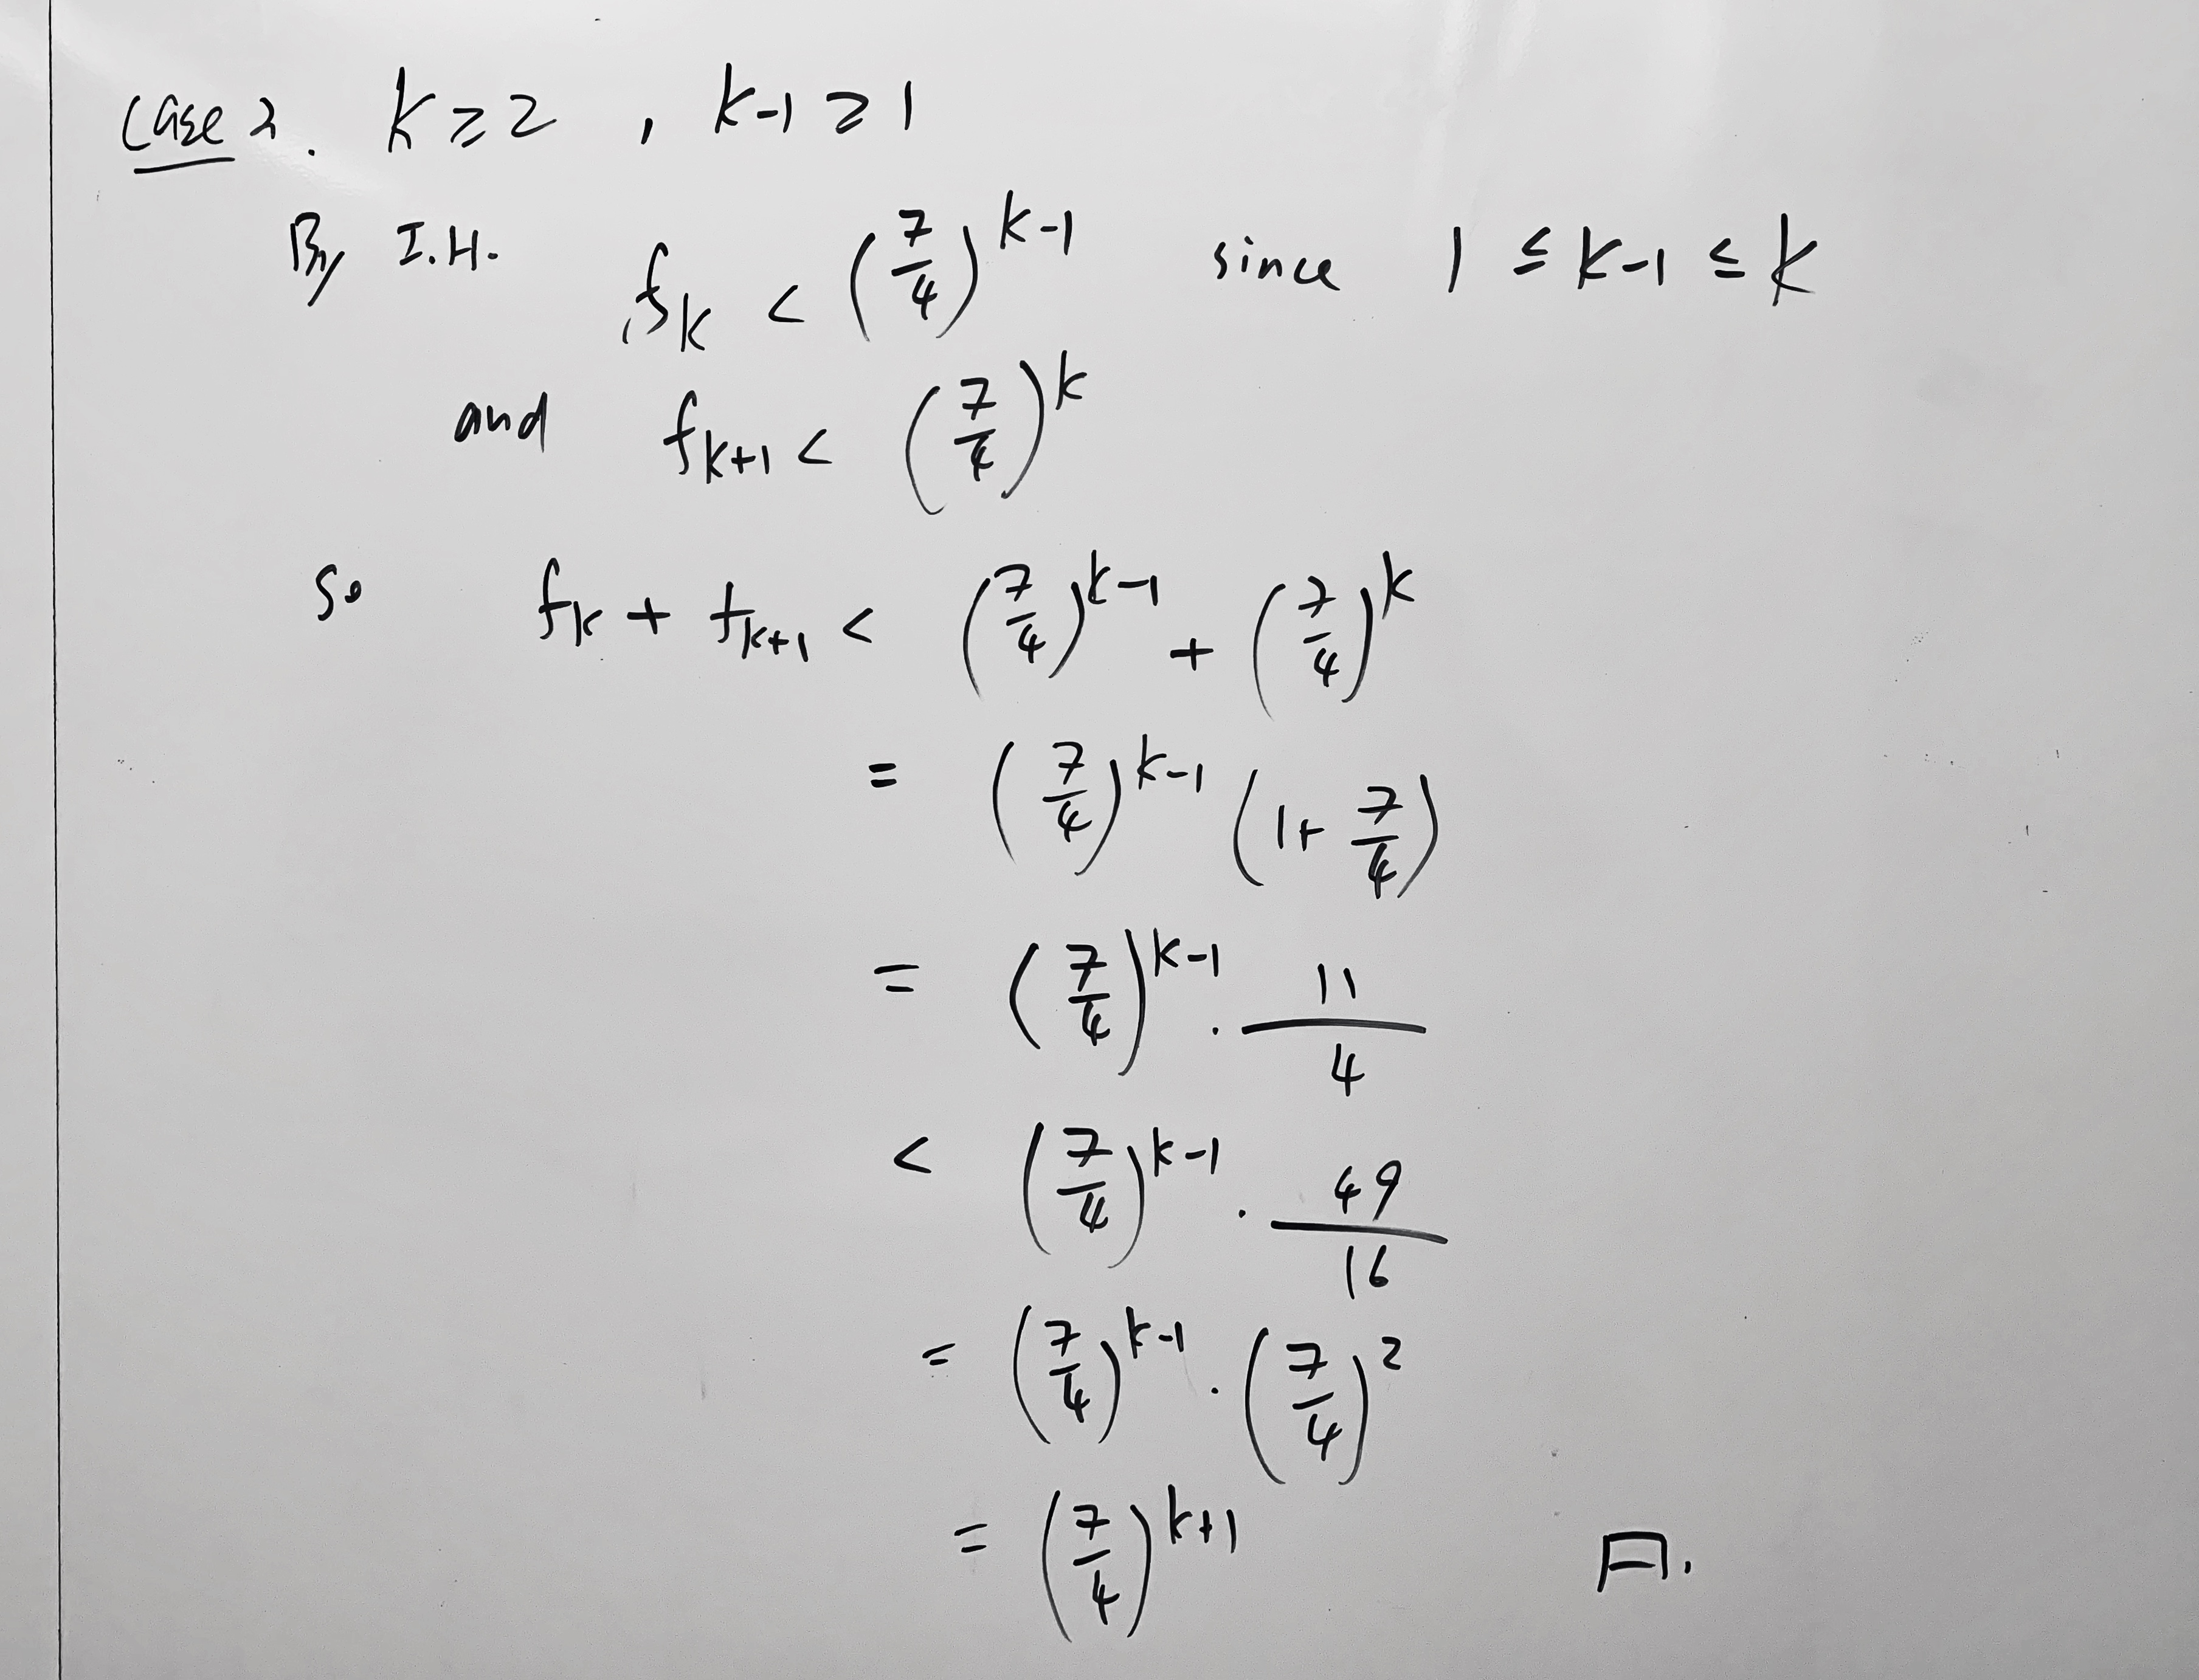 Case 2. k ≥ 2 , k-1 ≥ 1
By I.H. f_k < (7/4)^{k-1} since 1 ≤ k-1 ≤ k
and f_{k+1} < (7/4)^k
So f_k + f_{k+1} < (7/4)^{k-1} + (7/4)^k
= (7/4)^{k-1} (1 + 7/4)
= (7/4)^{k-1} · 11/4
< (7/4)^{k-1} · 49/16
= (7/4)^{k-1} · (7/4)^2
= (7/4)^{k+1} □.